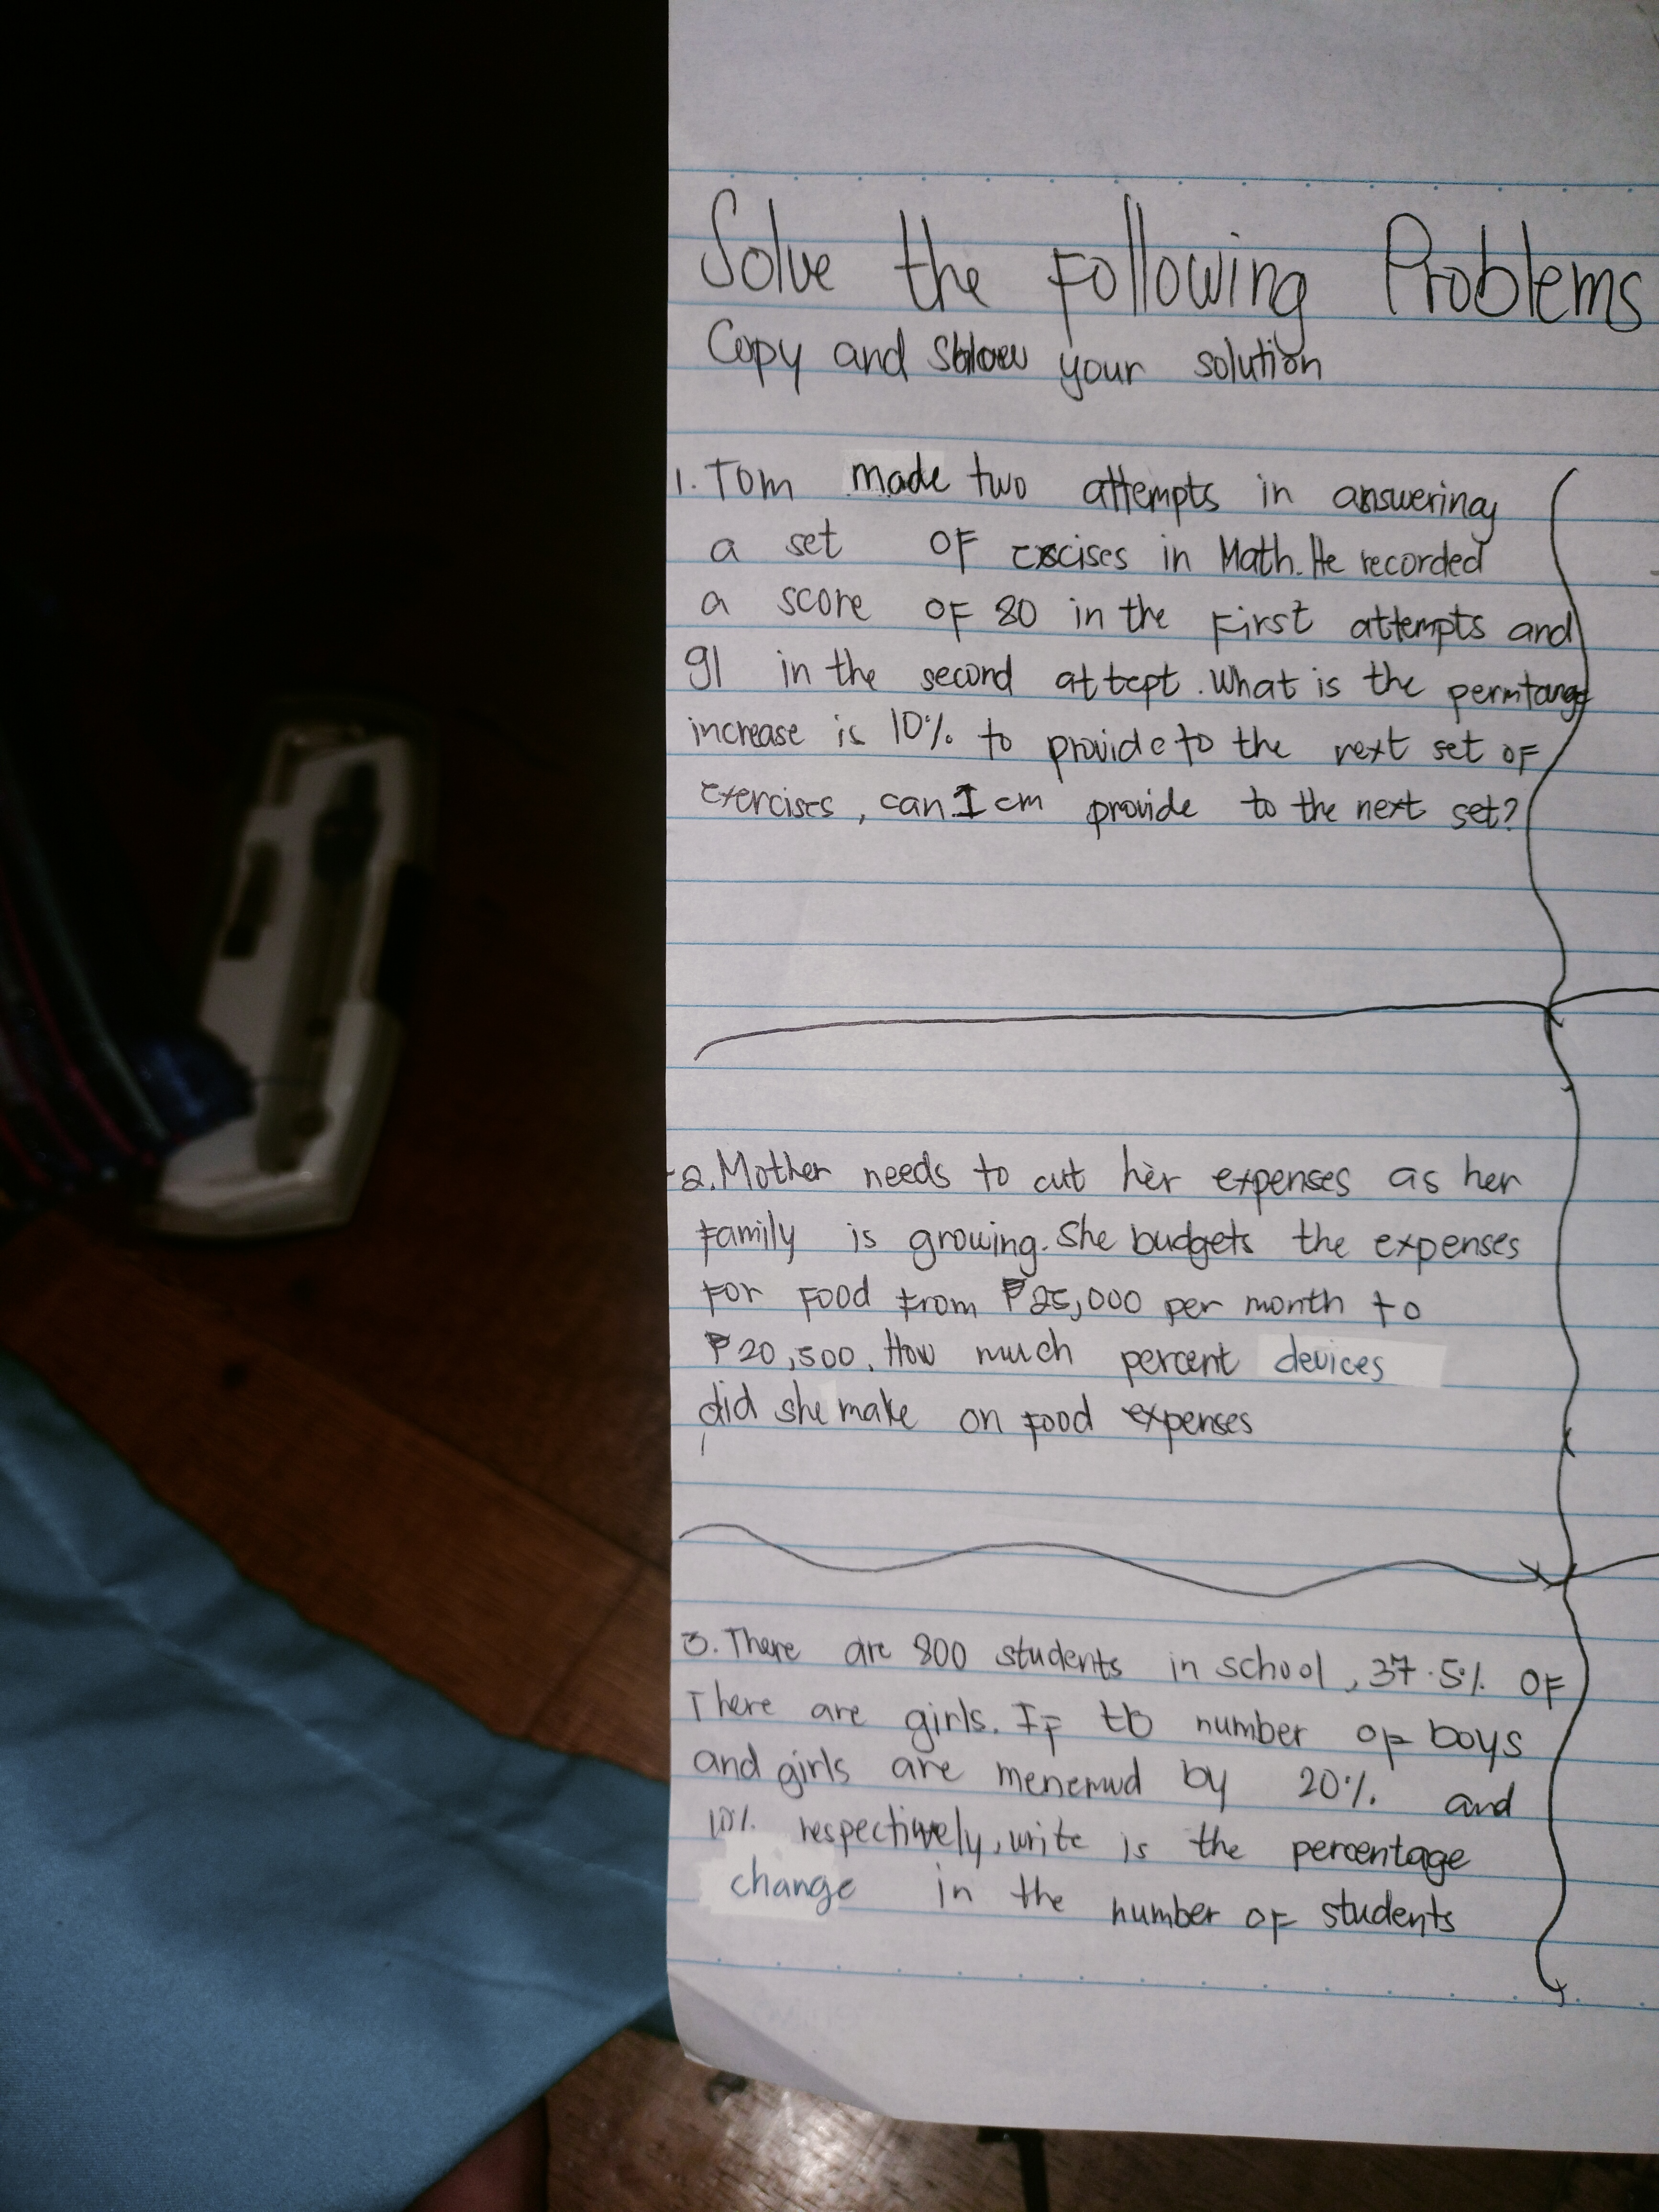 Solve the Following Problems
Copy and your solution
1. Tom made two attempts in answering
a set OF excises in Math. He recorded
a score OF 80 in the First attempts and
91 in the second attept. What is the
increase is 10% to provide to the next set OF
exercises, can I cm provide to the next set?
2. Mother needs to cut her expenses as her
Family is growing. She budgets the expenses
For Food From ₱25,000 per month to
₱20,500. How much percent devices
did she make on Food expenses
3. There are 800 students in school, 37.5% OF
There are girls. IF number OF boys
and girls are by 20% and
10% respectively, write is the percentage
change in the number OF students